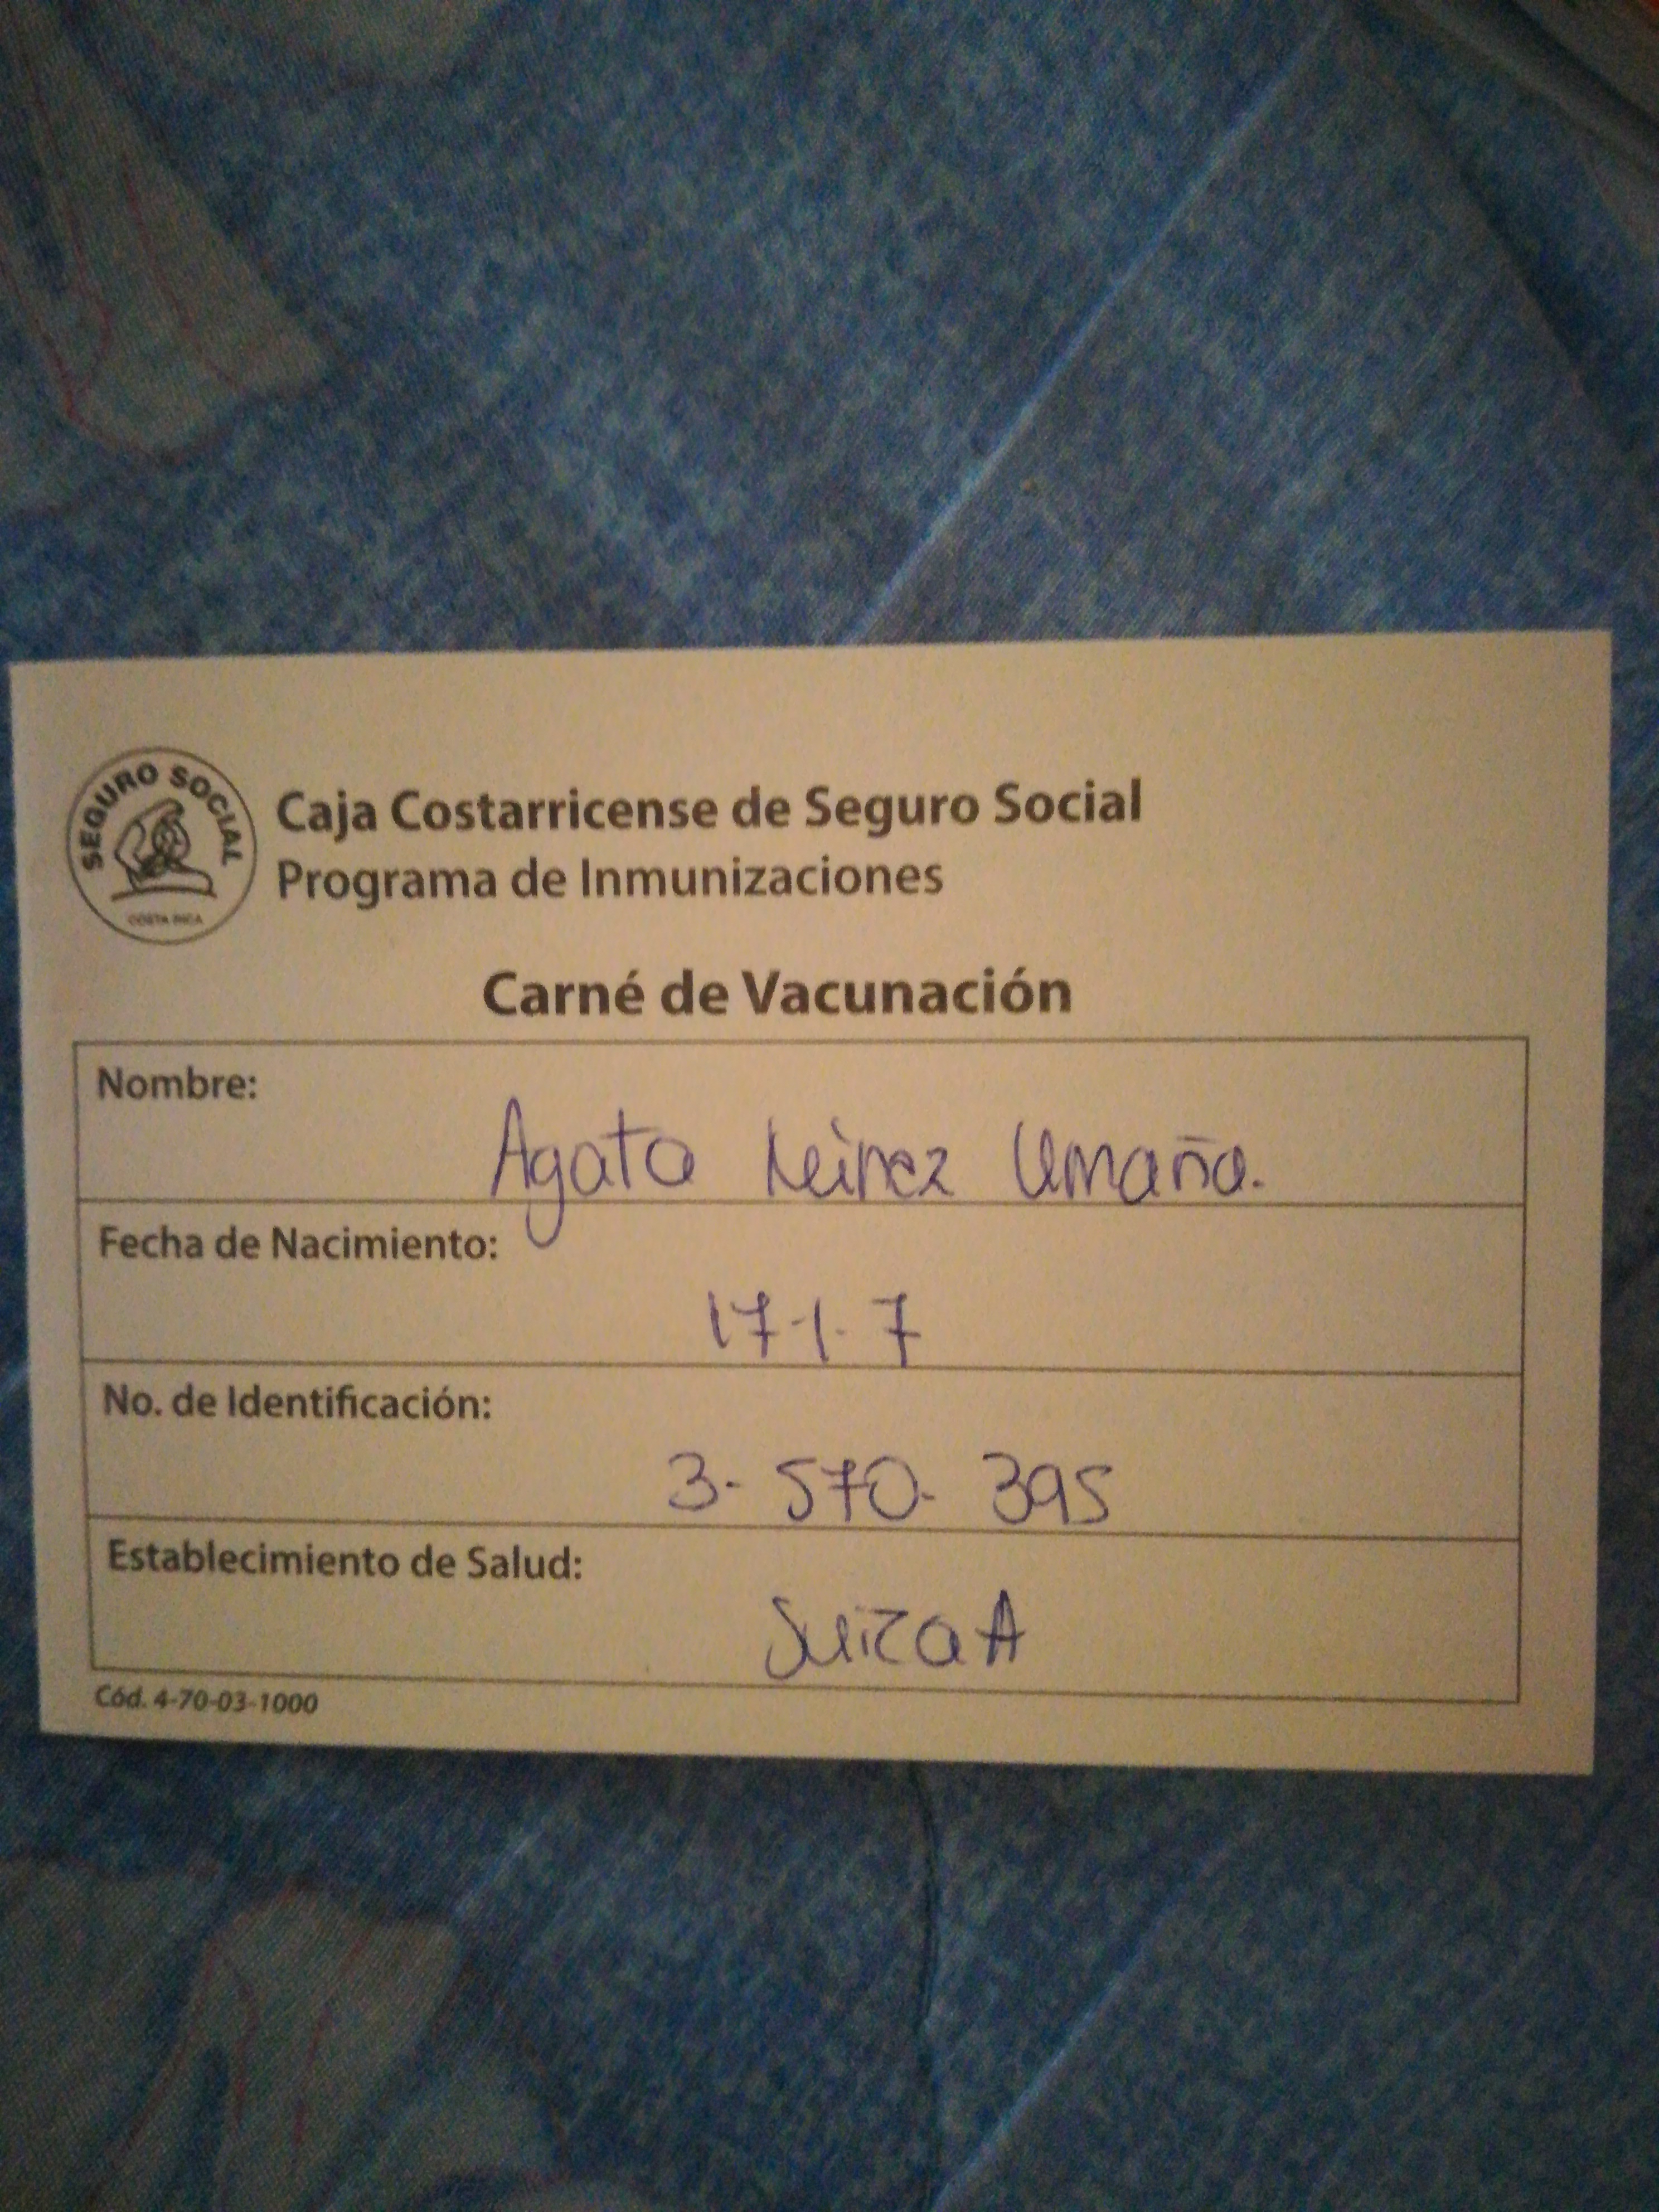 SEGURO SOCIAL
COSTA RICA
Caja Costarricense de Seguro Social
Programa de Inmunizaciones
Carné de Vacunación
Nombre:
Agata Umaña.
Fecha de Nacimiento:
17-1-7
No. de Identificación:
3-570-395
Establecimiento de Salud:
Suiza A
Cód. 4-70-03-1000